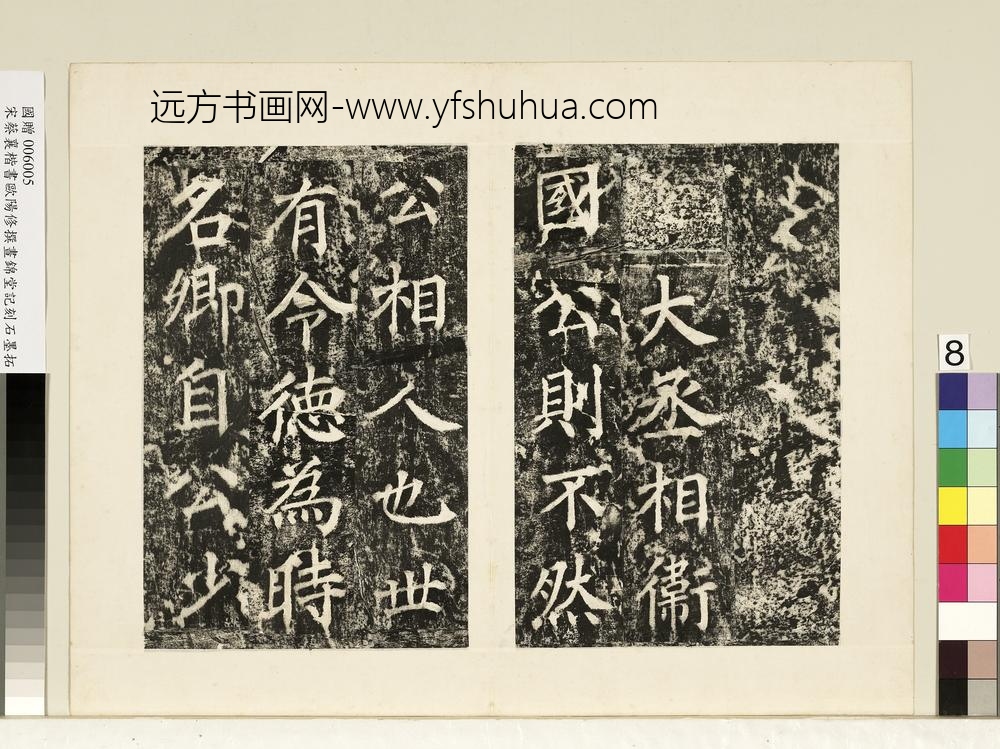 远方书画网-www.yfshuhua.com
國贈 006005
宋蔡襄楷書歐陽修撰晝錦堂記刻石墨拓
大丞相衛
國公則不然
公相人也世
有令德為時
名卿自公少
8